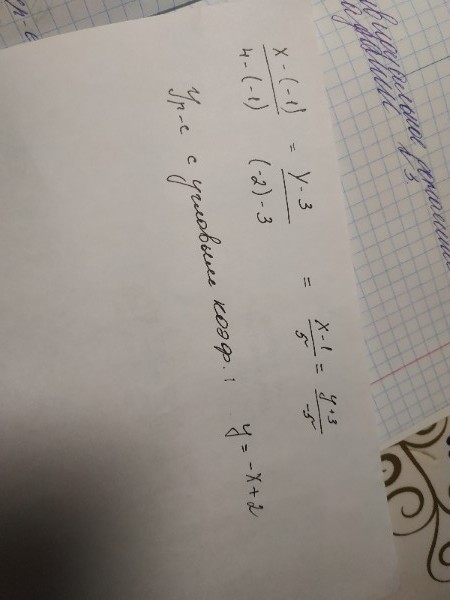 x - (-1) / 4 - (-1) = y - 3 / (-2) - 3 = x - 1 / 5 = y + 3 / -5
Ур-е с угловым коэф.: y = -x + 2